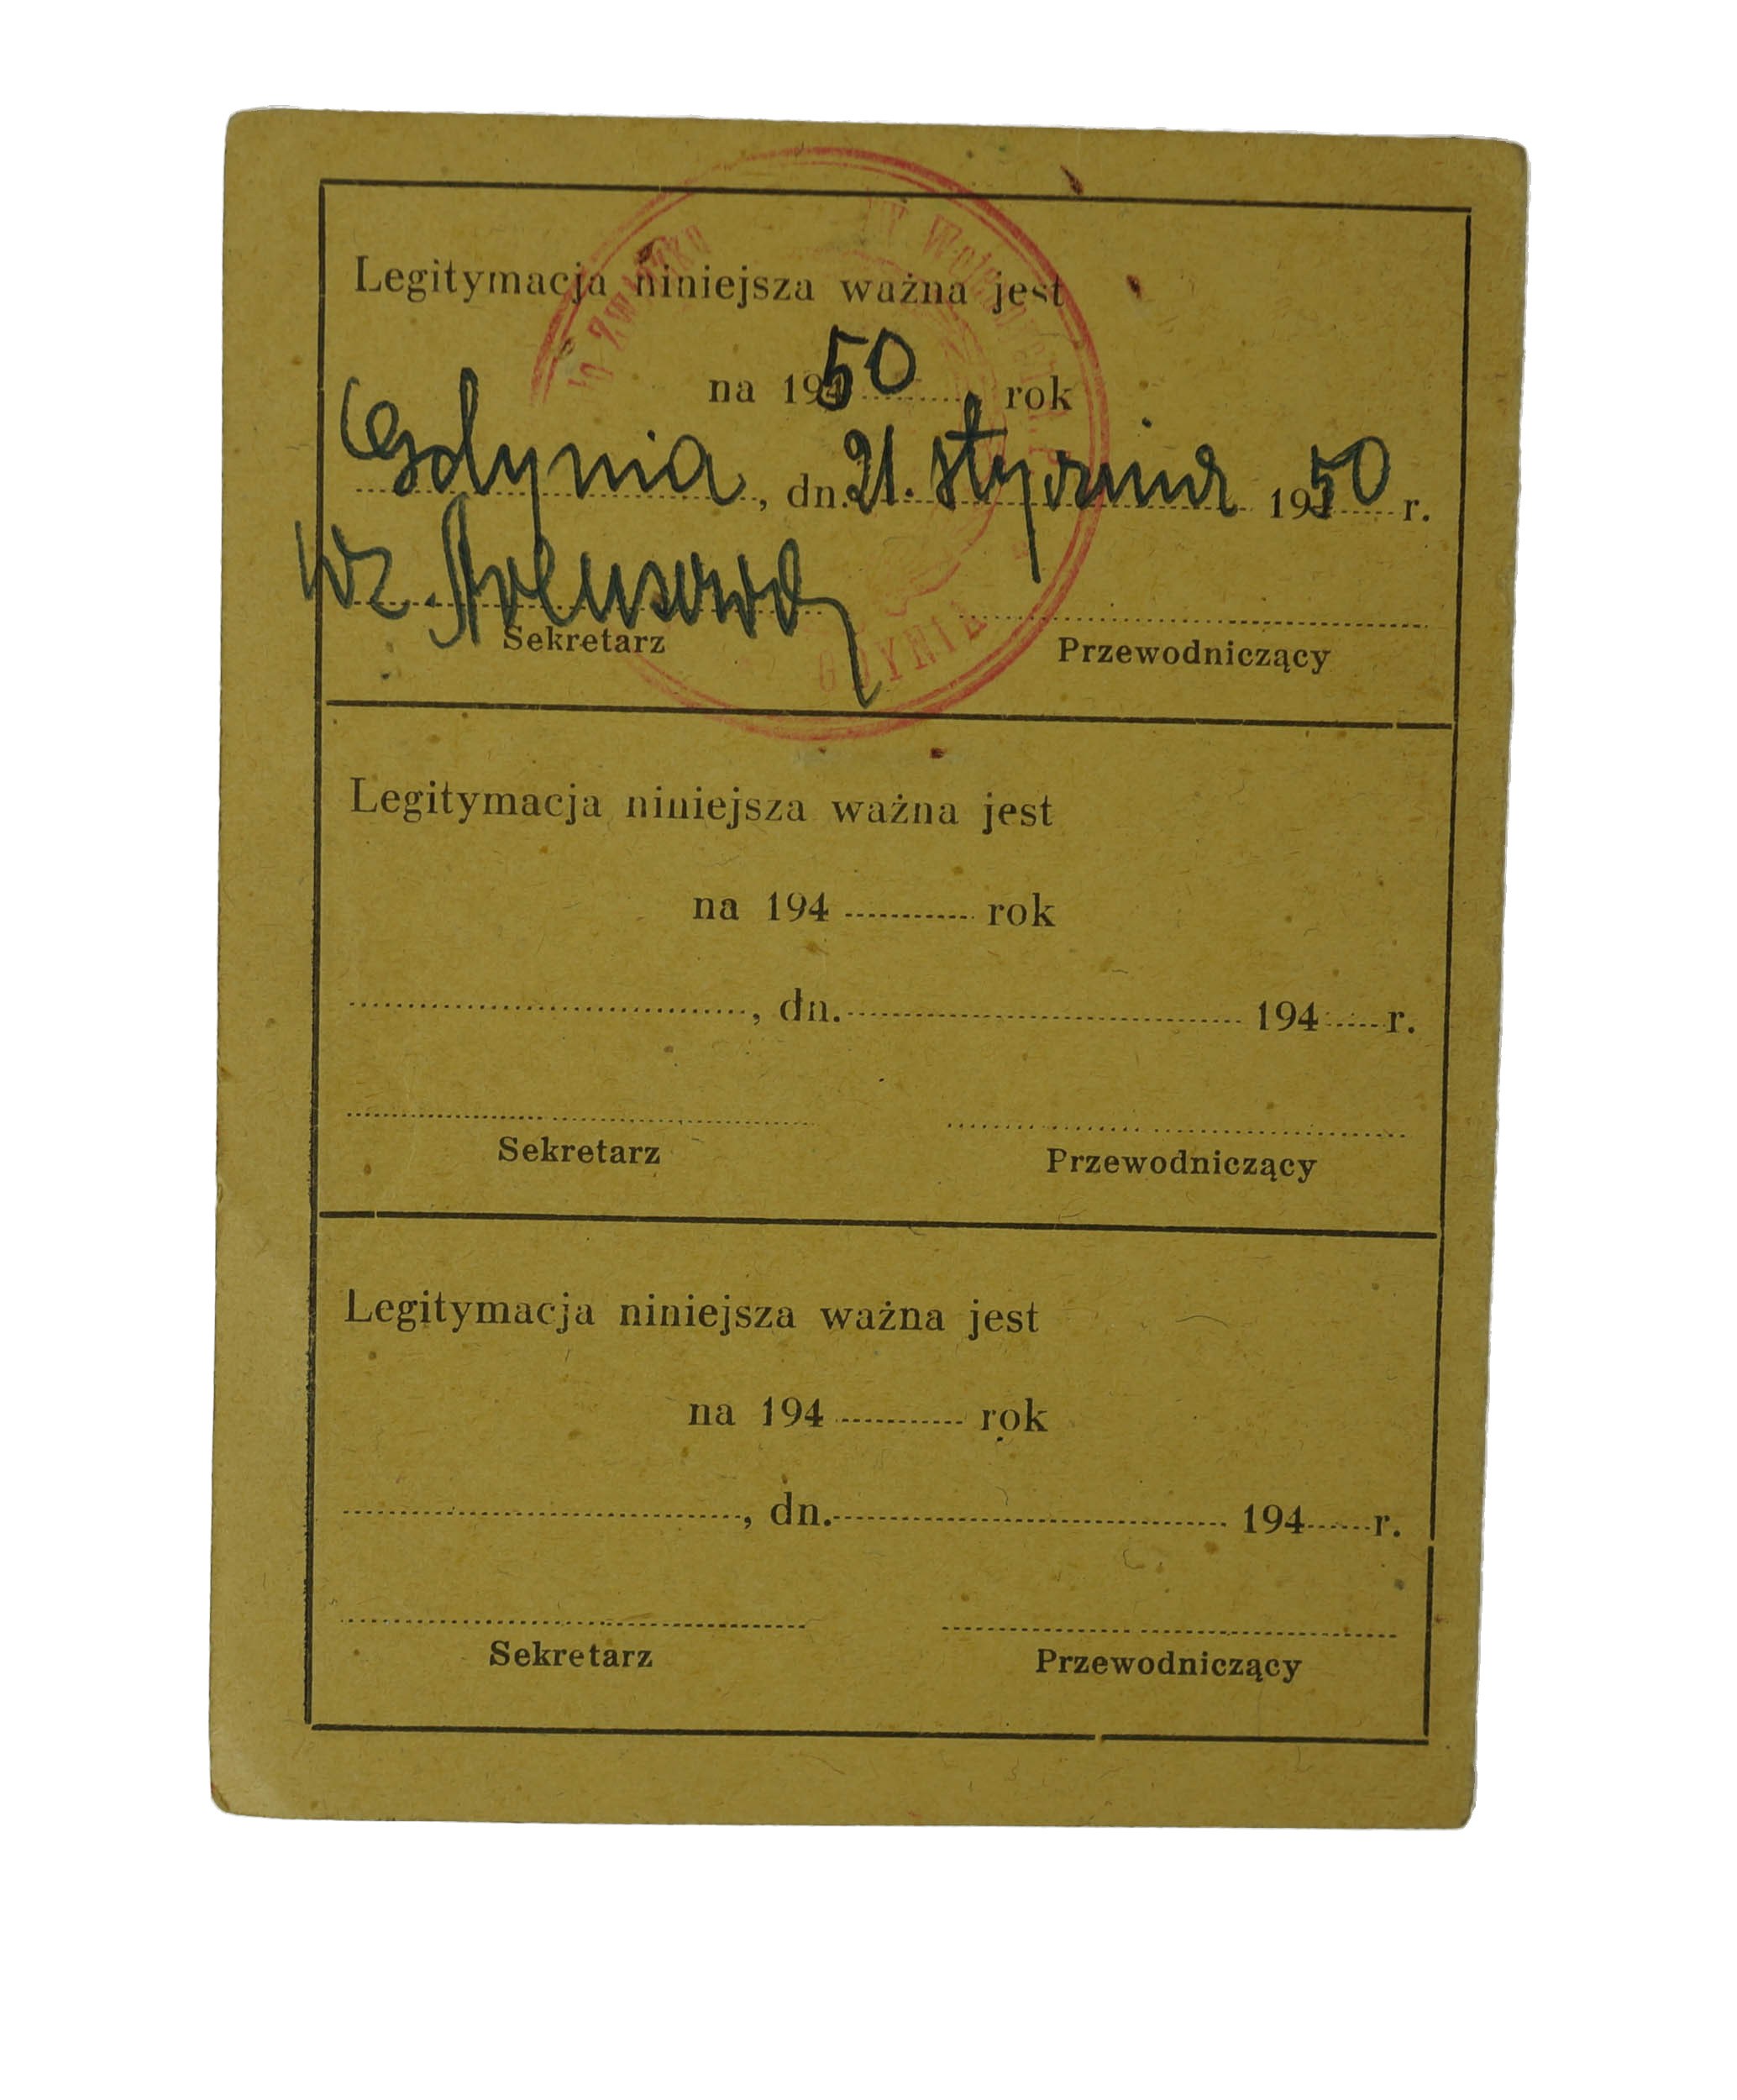 Legitymacja niniejsza ważna jest
na 1950 rok
Gdynia, dn. 21. stycznia 1950 r.
wz.
Sekretarz Przewodniczący
GDYNIA
Legitymacja niniejsza ważna jest
na 194 rok
, dn. 194 r.
Sekretarz Przewodniczący
Legitymacja niniejsza ważna jest
na 194 rok
, dn. 194 r.
Sekretarz Przewodniczący